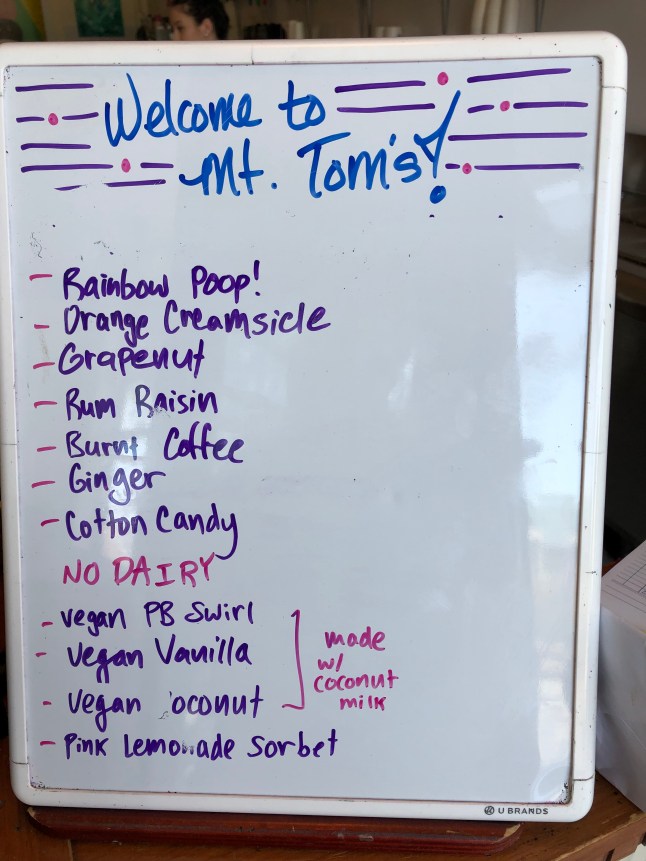 Welcome to
Mt. Tom's!
- Rainbow Poop!
- Orange Creamsicle
- Grapenut
- Rum Raisin
- Burnt Coffee
- Ginger
- Cotton Candy
NO DAIRY
- vegan PB Swirl
- vegan Vanilla
- vegan oconut
made
w/
coconut
milk
- Pink Lemonade Sorbet
U BRANDS